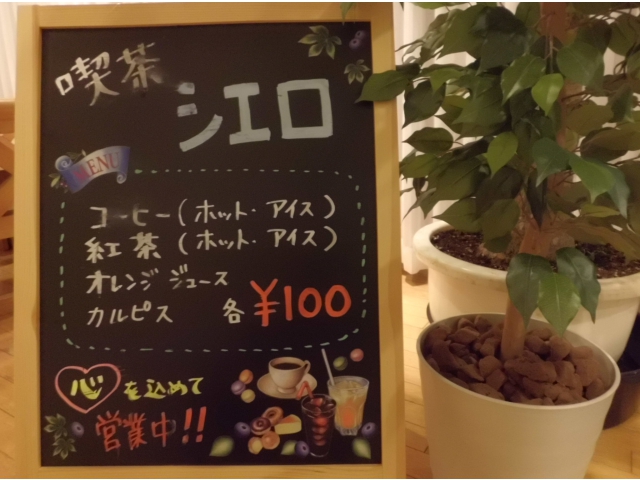 喫茶
シエロ
MENU
コーヒー(ホット・アイス)
紅茶(ホット・アイス)
オレンジジュース
カルピス 各¥100
心を込めて
営業中!!